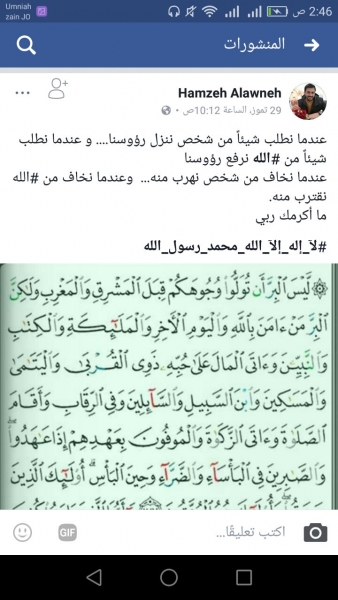 Umniah
zain JO
2:46 ص
29%
المنشورات
Hamzeh Alawneh
29 تموز، الساعة 10:12ص
عندما نطلب شيئاً من شخص ننزل رؤوسنا.... و عندما نطلب
شيئاً من #الله نرفع رؤوسنا
عندما نخاف من شخص نهرب منه... وعندما نخاف من #الله
نقترب منه.
ما أكرمك ربي
#لآ_إله_إلآ_الله_محمد_رسول_الله
۞ لَّيْسَ الْبِرَّ أَن تُوَلُّوا وُجُوهَكُمْ قِبَلَ الْمَشْرِقِ وَالْمَغْرِبِ وَلَٰكِنَّ
الْبِرَّ مَنْ ءَامَنَ بِاللَّهِ وَالْيَوْمِ الْآخِرِ وَالْمَلَٰٓئِكَةِ وَالْكِتَٰبِ
وَالنَّبِيِّۦنَ وَءَاتَى الْمَالَ عَلَىٰ حُبِّهِۦ ذَوِي الْقُرْبَىٰ وَالْيَتَٰمَىٰ
وَالْمَسَٰكِينَ وَابْنَ السَّبِيلِ وَالسَّآئِلِينَ وَفِي الرِّقَابِ وَأَقَامَ
الصَّلَوٰةَ وَءَاتَى الزَّكَوٰةَ وَالْمُوفُونَ بِعَهْدِهِمْ إِذَا عَٰهَدُوا
وَالصَّٰبِرِينَ فِي الْبَأْسَآءِ وَالضَّرَّآءِ وَحِينَ الْبَأْسِ أُولَٰٓئِكَ الَّذِينَ
اكتب تعليقًا...
GIF